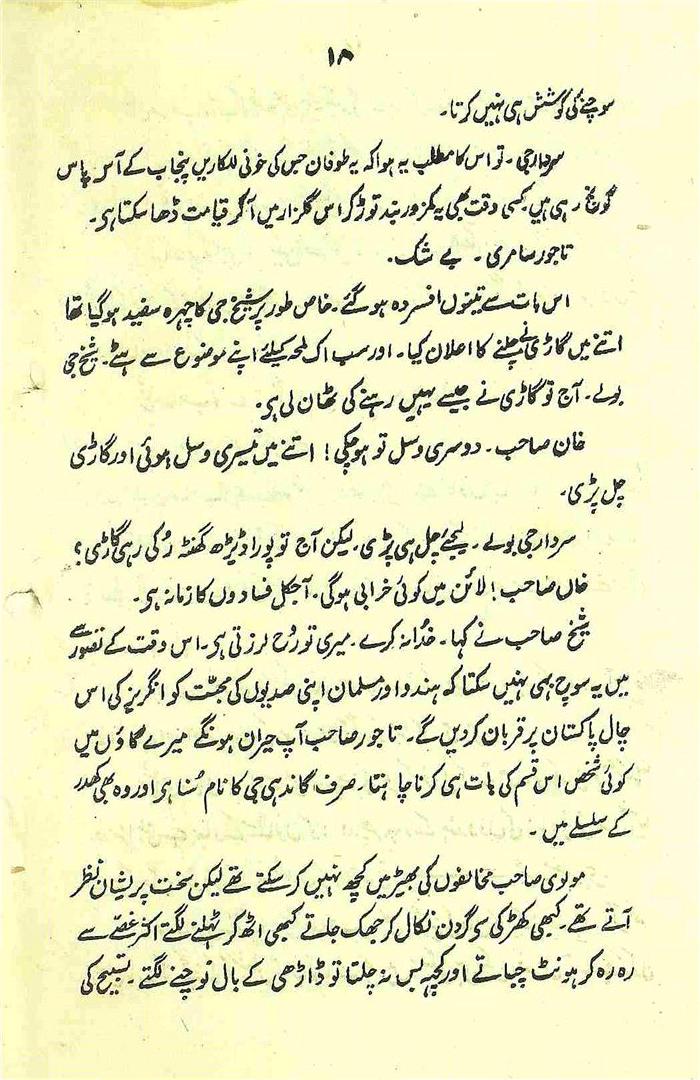 ۱۸
سوچنے کی کوشش ہی نہیں کرتا۔
سردار جی۔ تو اس کا مطلب یہ ہوا کہ یہ طوفان جس کی خونی للکاریں پنجاب کے آس پاس
گونج رہی ہیں۔ کسی وقت بھی یہ کمزور بند توڑ کر اس گلزار میں آ کر قیامت ڈھا سکتا ہی۔
تاجور سامری۔ بے شک۔
اس بات سے تینوں افسردہ ہو گئے۔ خاص طور پر شیخ جی کا چہرہ سفید ہو گیا تھا
اتنے میں گاڑی نے چلنے کا اعلان کیا۔ اور سب اک لمحہ کیلئے اپنے موضوع سے ہٹے۔ شیخ جی
بولے۔ آج تو گاڑی نے جیسے یہیں رہنے کی ٹھان لی ہی۔
خان صاحب۔ دوسری وسل تو ہو چکی! اتنے میں تیسری وسل ہوئی اور گاڑی
چل پڑی۔
سردار جی بولے۔ لیجئے چل ہی پڑی۔ لیکن آج تو پورا ڈیڑھ گھنٹہ رُکی رہی گاڑی؟
خاں صاحب! لائن میں کوئی خرابی ہوگی۔ آجکل فسادوں کا زمانہ ہی۔
شیخ صاحب نے کہا۔ خدُا نہ کرے۔ میری تو رُوح لرزتی ہی۔ اس وقت کے تصور سے
میں یہ سوچ بھی نہیں سکتا کہ ہندو اور مسلمان اپنی صدیوں کی محبّت کو انگریز کی اس
چال پاکستان پر قربان کر دیں گے۔ تاجور صاحب آپ حیران ہونگے میرے گاؤں میں
کوئی شخص اس قسم کی بات ہی کرنا چاہتا۔ صرف گاندھی جی کا نام سُنا ہی اور وہ بھی کھدر
کے سلسلے میں۔
مولوی صاحب مخالفوں کی بھیڑ میں کچھ نہیں کر سکتے تھے لیکن سخت پریشان نظر
آتے تھے۔ کبھی کھڑکی سی گردن نکال کر جھک جاتے کبھی اٹھ کر ٹہلنے لگتے اکثر غصّے سے
رہ رہ کر ہونٹ چباتے اور کچھ بس نہ چلتا تو ڈاڑھی کے بال نوچنے لگتے۔ تسبیح کی